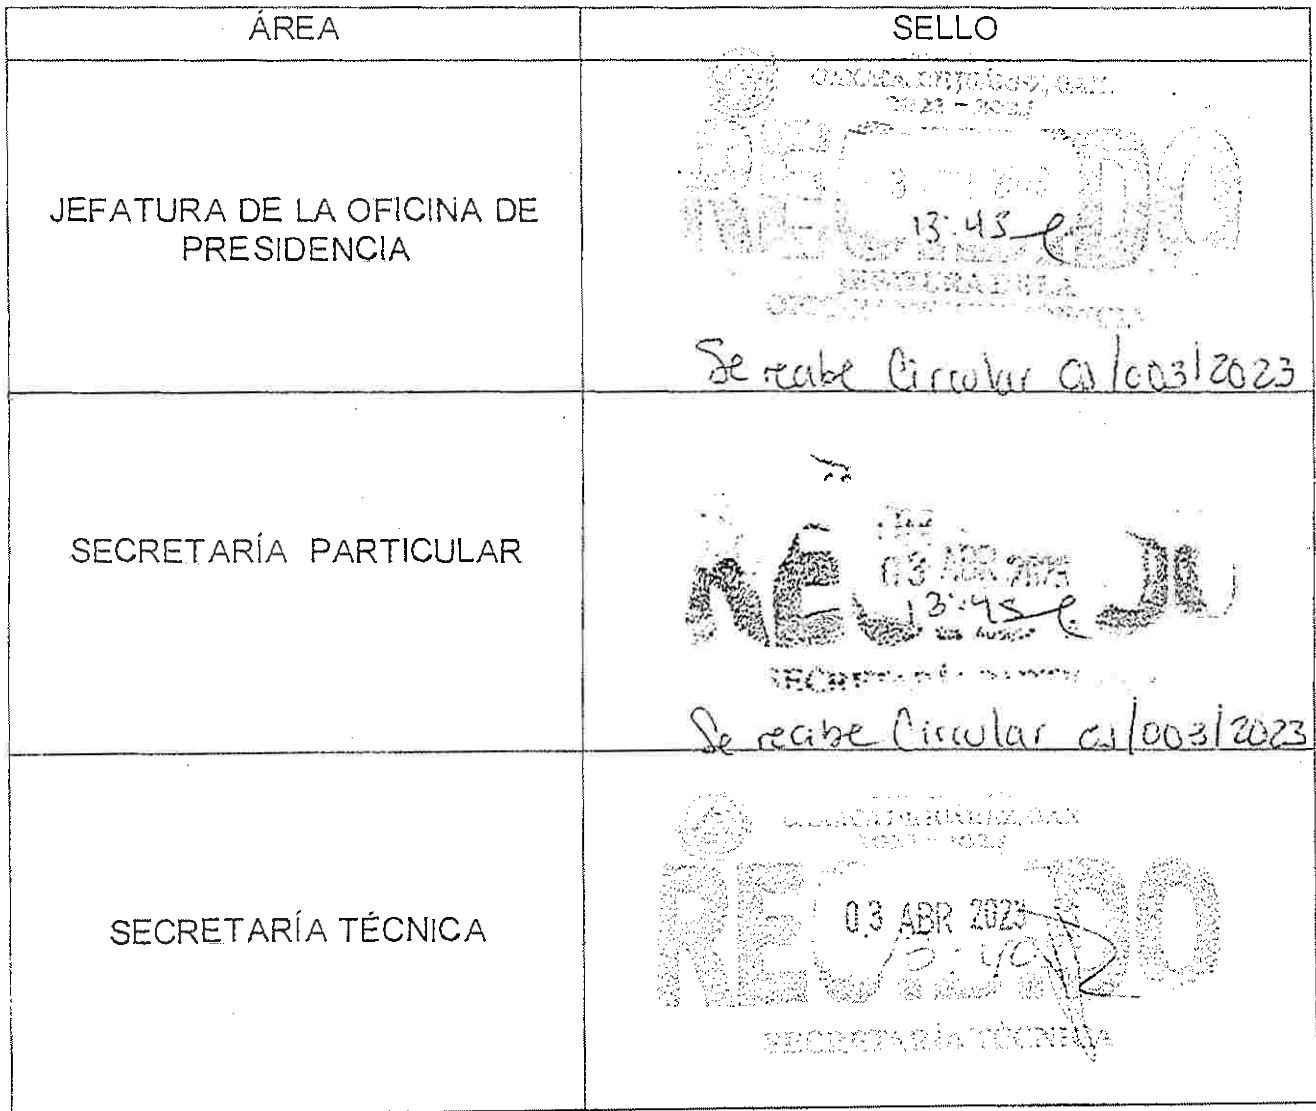 ÁREA
SELLO
JEFATURA DE LA OFICINA DE
PRESIDENCIA
RECIBIDO
13:45
Se recibe Circular CI/003/2023
SECRETARÍA PARTICULAR
03 ABR 2023
13:45
SECRETARÍA
Se recibe Circular CI/003/2023
SECRETARÍA TÉCNICA
RECIBIDO
03 ABR 2023
SECRETARÍA TÉCNICA